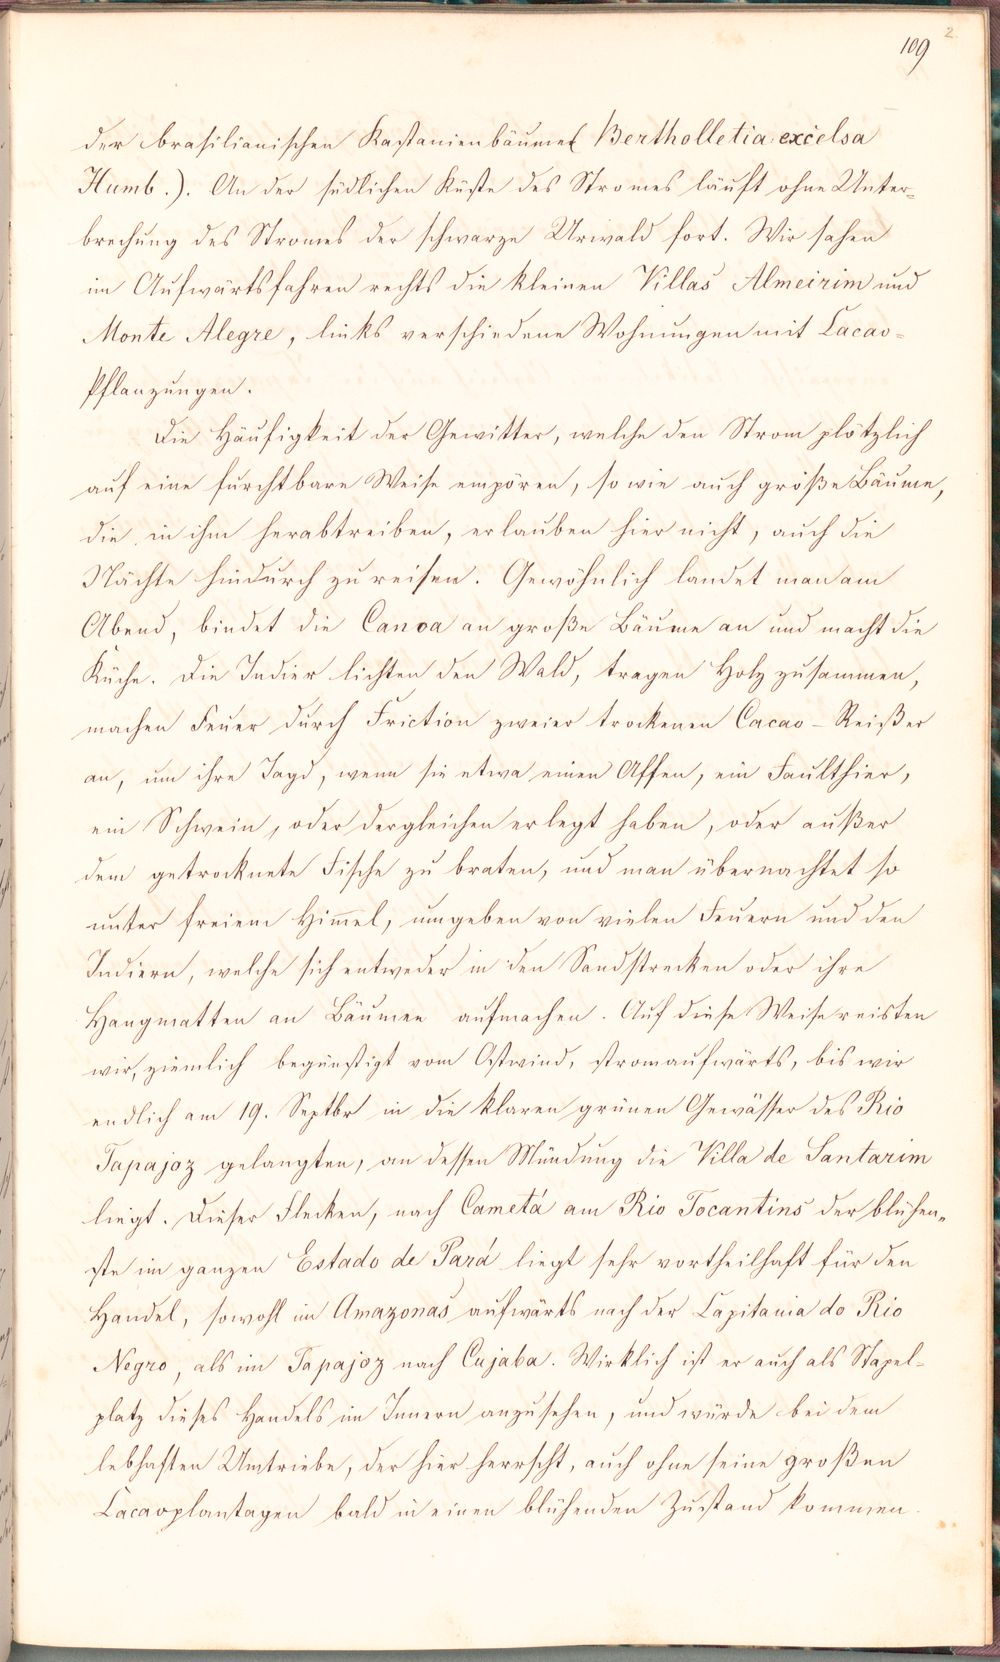 109
2
der brasilianischen Kastanienbäume (Bertholletia excelsa
Humb.). An der südlichen Küste des Stromes läuft ohne Unter=
brechung des Stromes der schwarze Urwald fort. Wir sahen
im Aufwärtsfahren rechts die kleinen Villas Almeirim und
Monte Alegre, links verschiedene Wohnungen mit Cacao=
Pflanzungen.
Die Häufigkeit der Gewitter, welche den Strom plötzlich
auf eine furchtbare Weise empören, so wie auch große Bäume,
die in ihm herabtreiben, erlauben hier nicht, auch die
Nächte hindurch zu reisen. Gewöhnlich landet man am
Abend, bindet die Canoa an große Bäume an und macht die
Küche. Die Indier lichten den Wald, tragen Holz zusammen,
machen Feuer durch Friction zweier trockenen Cacao-Reißer
an, um ihre Jagd, wenn sie etwa einen Affen, ein Faulthier,
ein Schwein, oder dergleichen erlegt haben, oder außer
dem getrocknete Fische zu braten, und man übernachtet so
unter freiem Him̄el, umgeben von vielen Feuern und den
Indiern, welche sich entweder in den Sand strecken oder ihre
Hangmatten an Bäumen aufmachen. Auf diese Weise reisten
wir, ziemlich begünstigt vom Ostwind, stromaufwärts, bis wir
endlich am 19. Septbr in die klaren grünen Gewässer des Rio
Tapajoz gelangten, an dessen Mündung die Villa de Santarim
liegt. Dieser Flecken, nach Cametá am Rio Tocantins der blühen„
ste im ganzen Estado de Pará liegt sehr vortheilhaft für den
Handel, sowohl im Amazonas aufwärts nach der Capitania do Rio
Negro, als im Tapajoz nach Cujaba. Wirklich ist er auch als Stapel=
platz dieses Handels im Innern anzusehen, und würde bei dem
lebhaften Umtriebe, der hier herrscht, auch ohne seine großen
Cacaoplantagen bald in einen blühenden Zustand kommen.